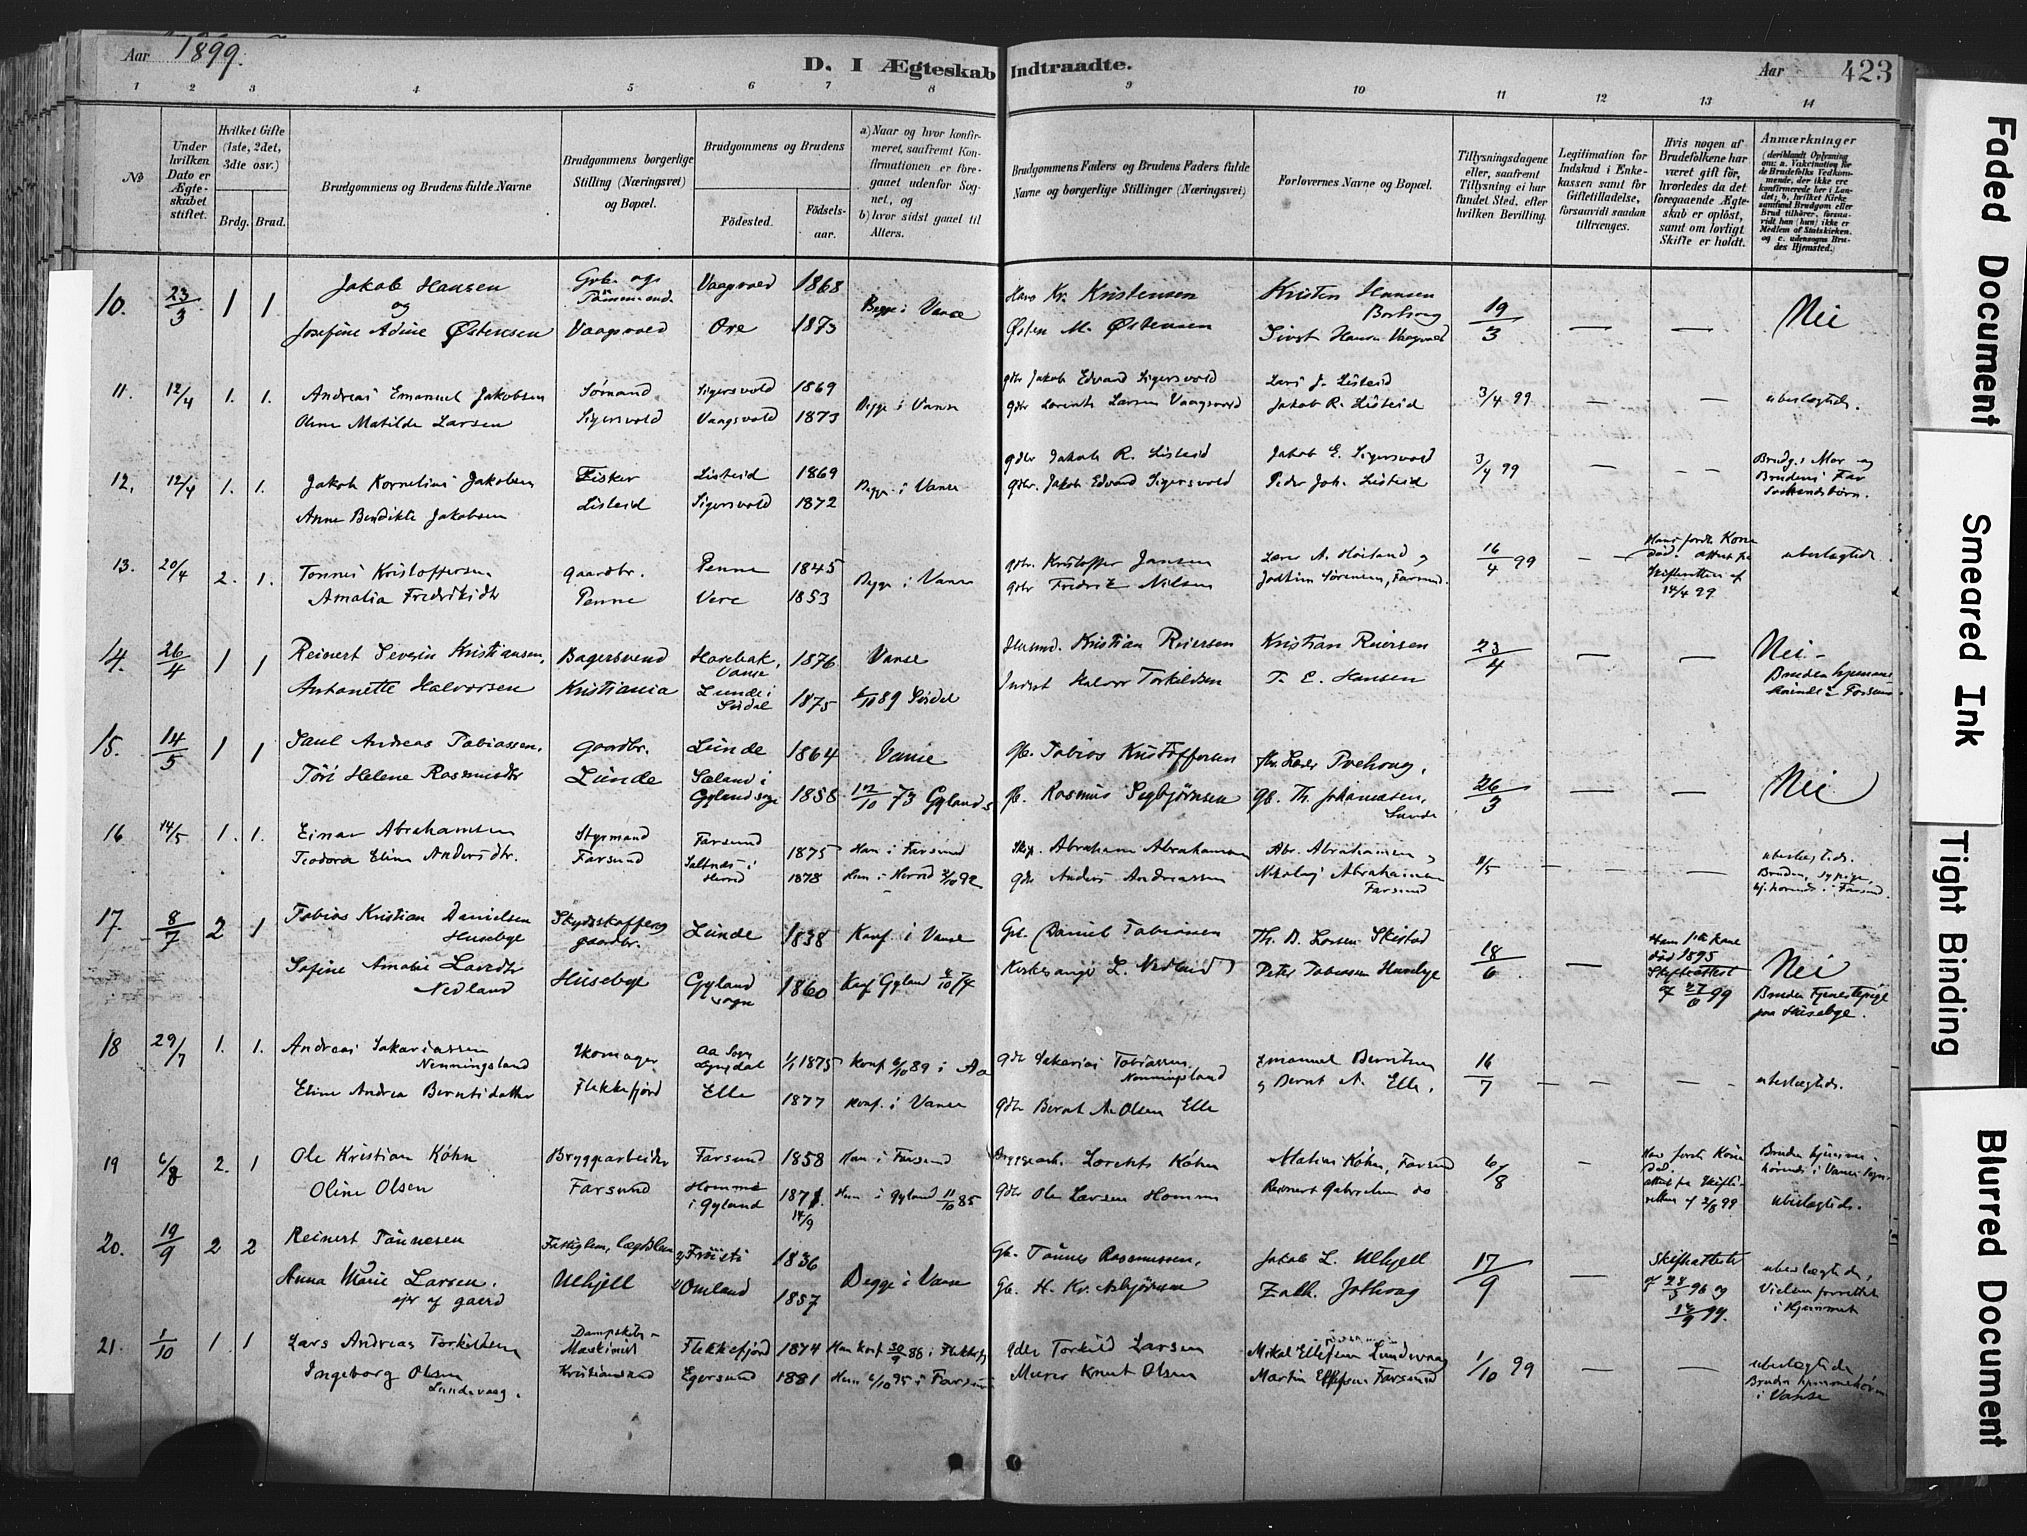 Aar 1899.
D. I Ægteskab Indtraadte.
Aar 423
1 2 3 4 5 6 7 8 9 10 11 12 13 14
No
Under hvilken Dato er Ægteskabet stiftet.
Hvilket Gifte (1ste, 2det, 3die osv.)
Brdg. Brud.
Brudgommens og Brudens fulde Navne
Brudgommens borgerlige Stilling (Næringsvei) og Bopæl.
Brudgommens og Brudens
Fødested.
Fødselsaar.
a) Naar og hvor konfirmeret, saafremt Konfirmationen er foregaaet udenfor Sognet, og
b) hvor sidst gaaet til Alters.
Brudgommens Faders og Brudens Faders fulde Navne og borgerlige Stillinger (Næringsvei)
Forlovernes Navne og Bopæl.
Tillysningsdagene eller, saafremt Tillysning ei har fundet Sted, efter hvilken Bevilling.
Legitimation for Indskud i Enkekassen samt for Giftetilladelse, forsaavidt saadan tiltrænges.
Hvis nogen af Brudefolkene har været gift før, hvorledes da det foregaaende Ægteskab er opløst, samt om lovligt Skifte er holdt.
Anmærkninger
(deriblandt Oplysning om: a. Vakcination for de Brudefolks Vedkommende, der ikke ere konfirmerede her i Landet; b. hvilket Kirkesamfund Brudgom eller Brud tilhører, forsaavidt han (hun) ikke er Medlem af Statskirken, og c. udensogns Brudes Hjemsted.)
10. 23/3 1 1. Jakob Hansen Vaagsvold 1868 Begge i Vanse Hans Kr. Kristensen Kristen Hansen 19/3 — — Nei
og
Josefine Adine Østensen Vaagsvold Ore 1873 Østen M. Østensen Sivert Hansen Vaagvold
11. 12/4 1. 1. Andreas Emanuel Jakobsen Sømand Sigersvold 1869 Begge i Vanse gdbr Jakob Edvard Sigersvold Lars J. Listeid 3/4 99 — — ubeslægtede.
Oline Matilde Larsen Sigersvold Vaagsvold 1873 gdbr Lorents Larsen Vaagsvold Jakob R. Listeid
12. 12/4 1. 1. Jakob Kornelius Jakobsen Fisker Listeid 1869 Begge i Vanse gdbr Jakob R. Listeid Jakob E. Sigersvold 3/4 99 — — Brudg.s Mor og
Anne Bendikte Jakobsen Listeid Sigersvold 1872 gdbr. Jakob Edvard Sigersvold Peder Joh. Listeid Brudens Far Søskendebørn.
13. 20/4 2. 1. Tønnes Kristoffersen Gaardbr. Penne 1845 Begge i Vanse gdbr. Kristoffer Jansen Lærer A. Høiland og 16/4 99 — Hans første Kone død. Attest fra Skifteretten af 14/4 99. ubeslægtede
Amalia Fredriksdtr Penne Vere 1853 gdbr Fredrik Nilsen Joakim Sørensen, Farsund.
14. 26/4 1 1 Reinert Severin Kristiansen, Bagersvend Havebak, Vanse 1876 Vanse Kristian Reiersen Kristian Reiersen 23/4 — — Nei —
Antonette Halvorsen Kristiania Lunde i Sirdal 1875 89 Sirdal Halvor Torkildsen T. E. Hansen Bruden
15. 14/5 1 1 Saul Andreas Tobiassen. Gaardbr. Lunde 1864 Vanse Gb. Tobias Kristoffersen 26/3 — — Nei
Tøri Helene Rasmusdtr Lunde Sæland i Gyland sogn 1858 12/10 73 Gylands Gb. Rasmus Sigbjørnsen Gb. Th. Johannesen, Lunde
16 14/5 1. 1. Einar Abrahamsen Styrmand Farsund 1875 Han i Farsund Skip. Abraham Abrahamsen Abr. Abrahamsen, 11/5 — — ubeslægtede.
Teodora Eline Andersdtr. Farsund Saltnes i Herred 1878 Hun i Herred 2/10 92 gdbr Anders Andreassen Nikolaj Abrahamsen Farsund Bruden, sypige, hj.hørende i Farsund
17. 8/7 2 1 Tobias Kristian Danielsen Husebye Skydsskaffer og gaardbr. Lunde 1838 Konf. i Vanse Gb. Daniel Tobiassen Th. B. Larsen Skistad 18/6 — Ham 1ste Kone død 1895 Skifteattest af 27/6 99 Nei
Sofine Amalie Larsdtr Nedland Husebye Gyland sogn 1860 Konf Gyland 4/10 74 Kirkesanger L. Nedland Peter Tobiassen Husebye Bruden Tjenestepige paa Husebye.
18 29/7 1. 1. Andreas Sakariassen Nenningsland Skomager Aa Sogn Lyngdal 1/1 1875 Konf. 6/10 89 i Aa gdbr Sakarias Tobiassen Nenningsland Emanuel Berntsen 16/7 — — ubeslægtede.
Eline Andrea Berntsdatter Flekkefjord Elle 1877 Konf. i Vanse gdbr Bernt A. Olsen Elle og Bernt A. Elle.
19 6/8 2. 1 Ole Kristian Køhn Bryggearbeider Farsund 1858 Han i Farsund Bryggearb. Lorents Køhn Matias Køhn, Farsund 6/8 — Hans første Kone død. Attest fra Skifteretten af 2/8 99 Bruden hjemmehørende i Vanse Sogn.
Oline Olsen Farsund Homme i Gyland 1871. 14/9 Hun i Gyland 11/10 85 gdbr Ole Larsen Homme Reinert Gabrielsen do ubeslægtede.
20. 19/9 2 2 Reinert Tønnesen Fattiglem, lægdslem Frøisti 1836 Begge i Vanse Gb. Tønnes Rasmussen, Jakob L. Ulhjell 17/9 — Skifteattester af 28/3 96 og 12/9 99. ubeslægtede,
Anna Marie Larsen. Ulhjell Omland 1857 Gb. H. Kr. Asbjørnsen Zakh. Jothoug Vielsen forrettet i Hjemmet
21. 1/10 1 1 Lars Andreas Torkildsen Dampskibs-Maskinist Flekkefjord 1874 Han konf 30/9 88 i Flekkefj gdbr Torkild Larsen Mikal Ellefsen Lundevaag 1/10 99 — — ubeslægtede
Ingeborg Olsen Lundevaag. Kristianssand Egersund 1881 Hun 6/10 95 i Farsund Murer Knut Olsen Martin Ellefsen Farsund Bruden hjemmehør. i Vanse
Faded Document
Smeared Ink
Tight Binding
Blurred Document